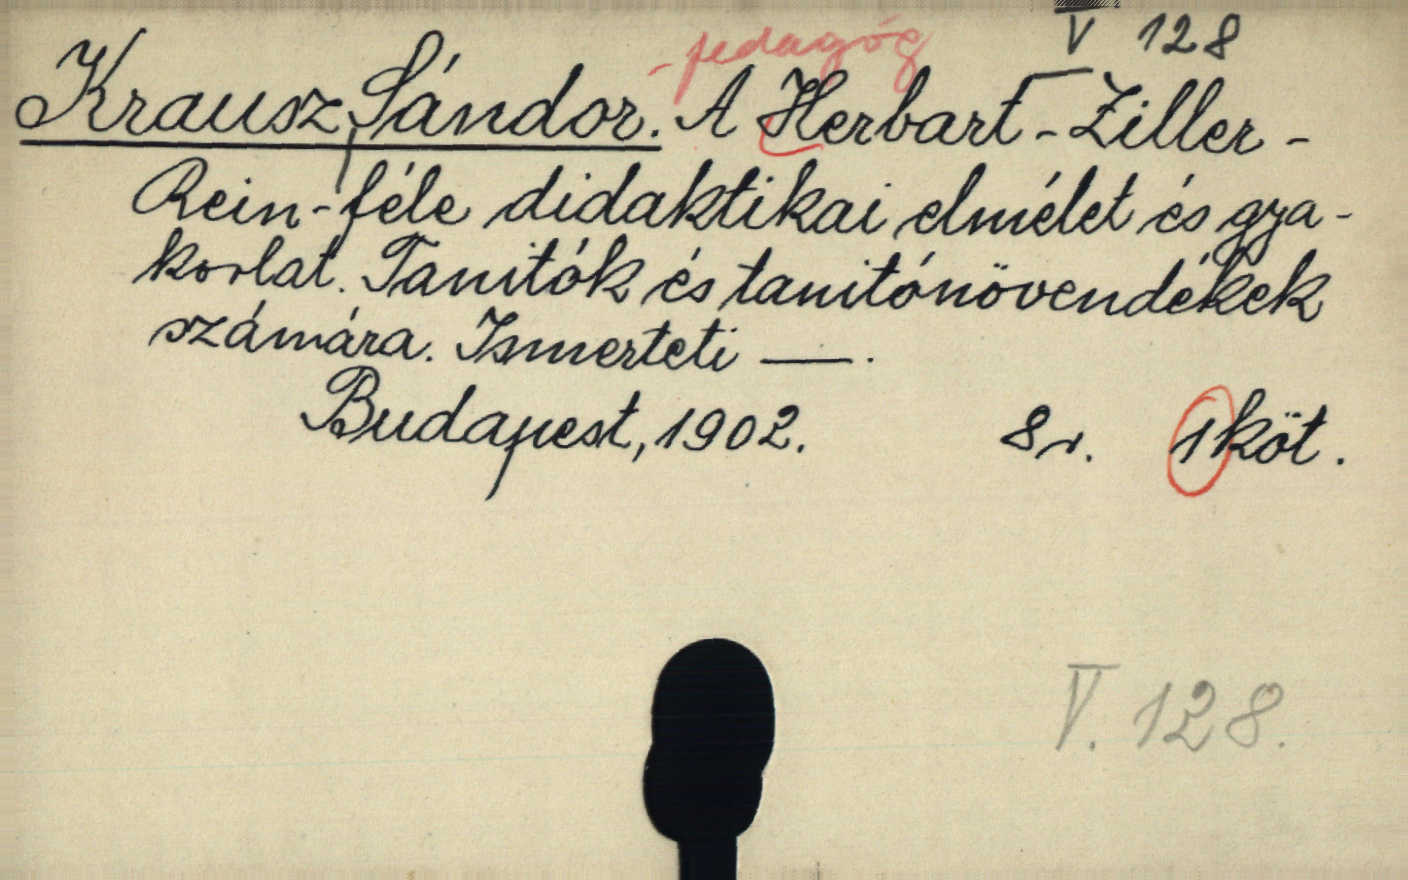 V 128
- pedagóg
Krausz, Sándor. A Herbart-Ziller-
Rein-féle didaktikai elmélet és gya-
korlat. Tanitók és tanitónövendékek
számára. Ismerteti —.
Budapest, 1902. 8r. 1 köt.
V. 128.